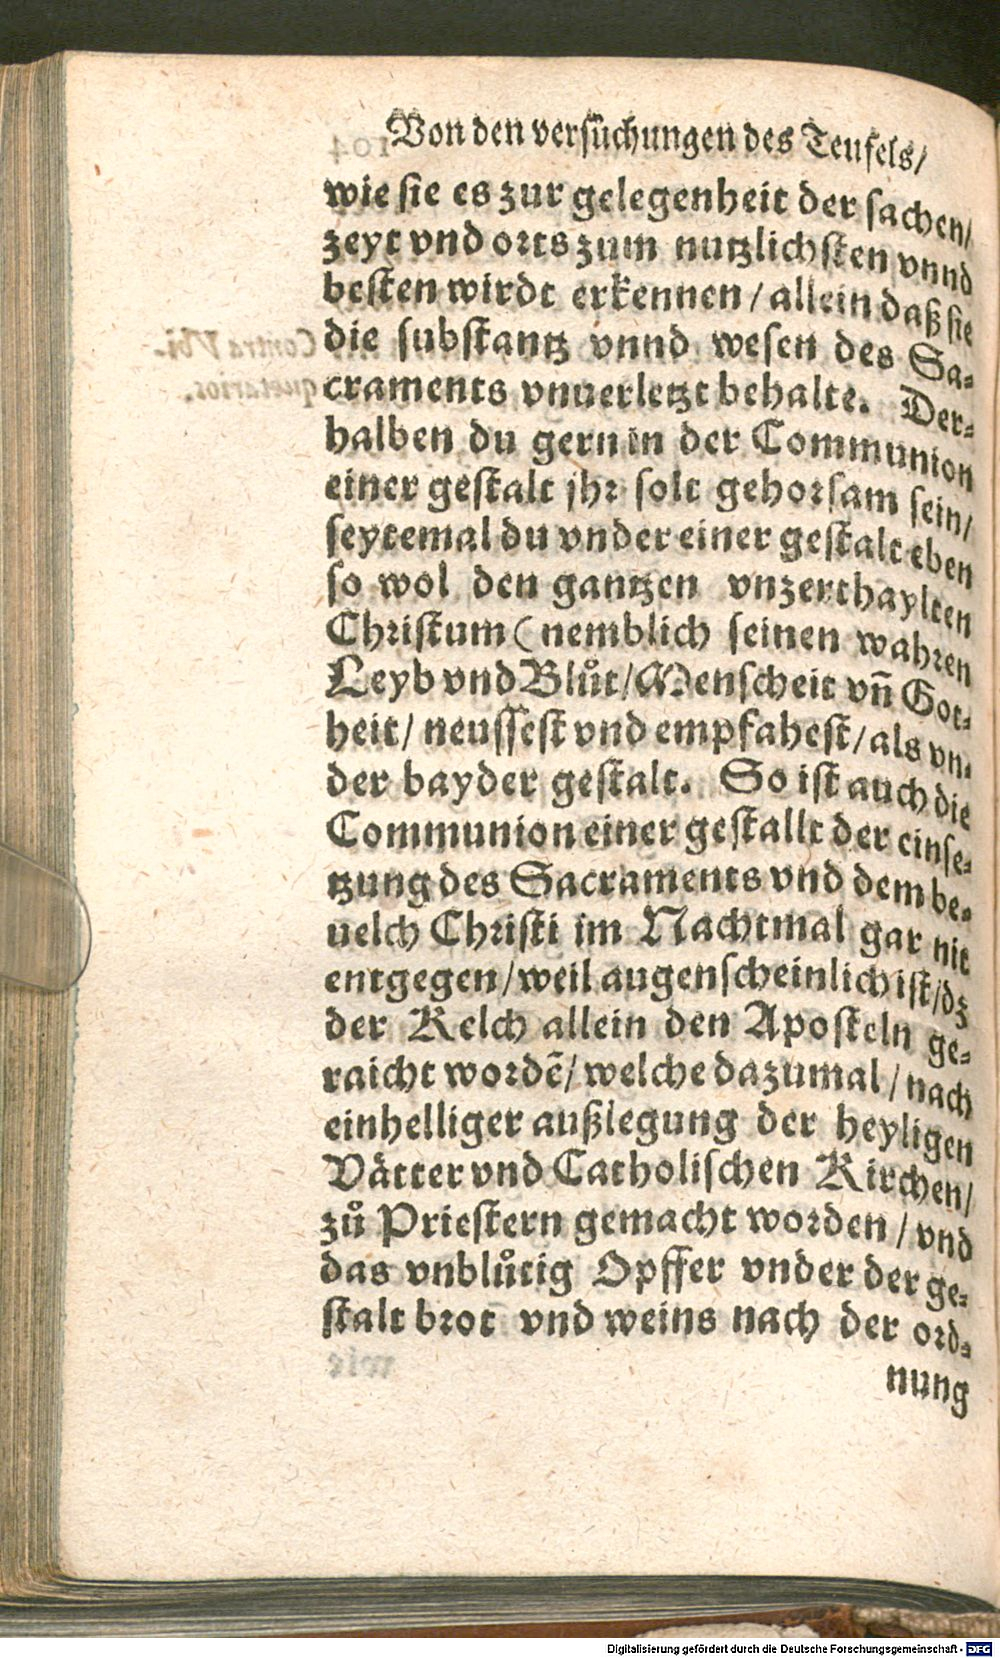 Von den versuͤchungen des Teufels/
wie sie es zur gelegenheit der sachen/
zeyt vnd orts zum nutzlichsten vnnd
besten wirdt erkennen / allein daß sie
die substantz vnnd wesen des Sa-
craments vnuerletzt behalte. Der-
halben du gern in der Communion
einer gestalt jhr solt gehorsam sein/
seytemal du vnder einer gestalt eben
so wol den gantzen vnzerthaylten
Christum (nemblich seinen wahren
Leyb vnd Bluͦt/Menscheit vn̄ Got-
heit/ neussest vnd empfahest/als vn-
der bayder gestalt. So ist auch die
Communion einer gestallt der einse-
tzung des Sacraments vnd dem be-
uelch Christi im Nachtmal gar nit
entgegen/weil augenscheinlich ist/dz
der Kelch allein den Aposteln ge-
raicht wordē/ welche dazumal / nach
einhelliger außlegung der heyligen
Vaͤtter vnd Catholischen Kirchen/
zuͦ Priestern gemacht worden / vnd
das vnbluͦtig Opffer vnder der ge-
stalt brot vnd weins nach der ord-
nung
Digitalisierung gefördert durch die Deutsche Forschungsgemeinschaft - DFG